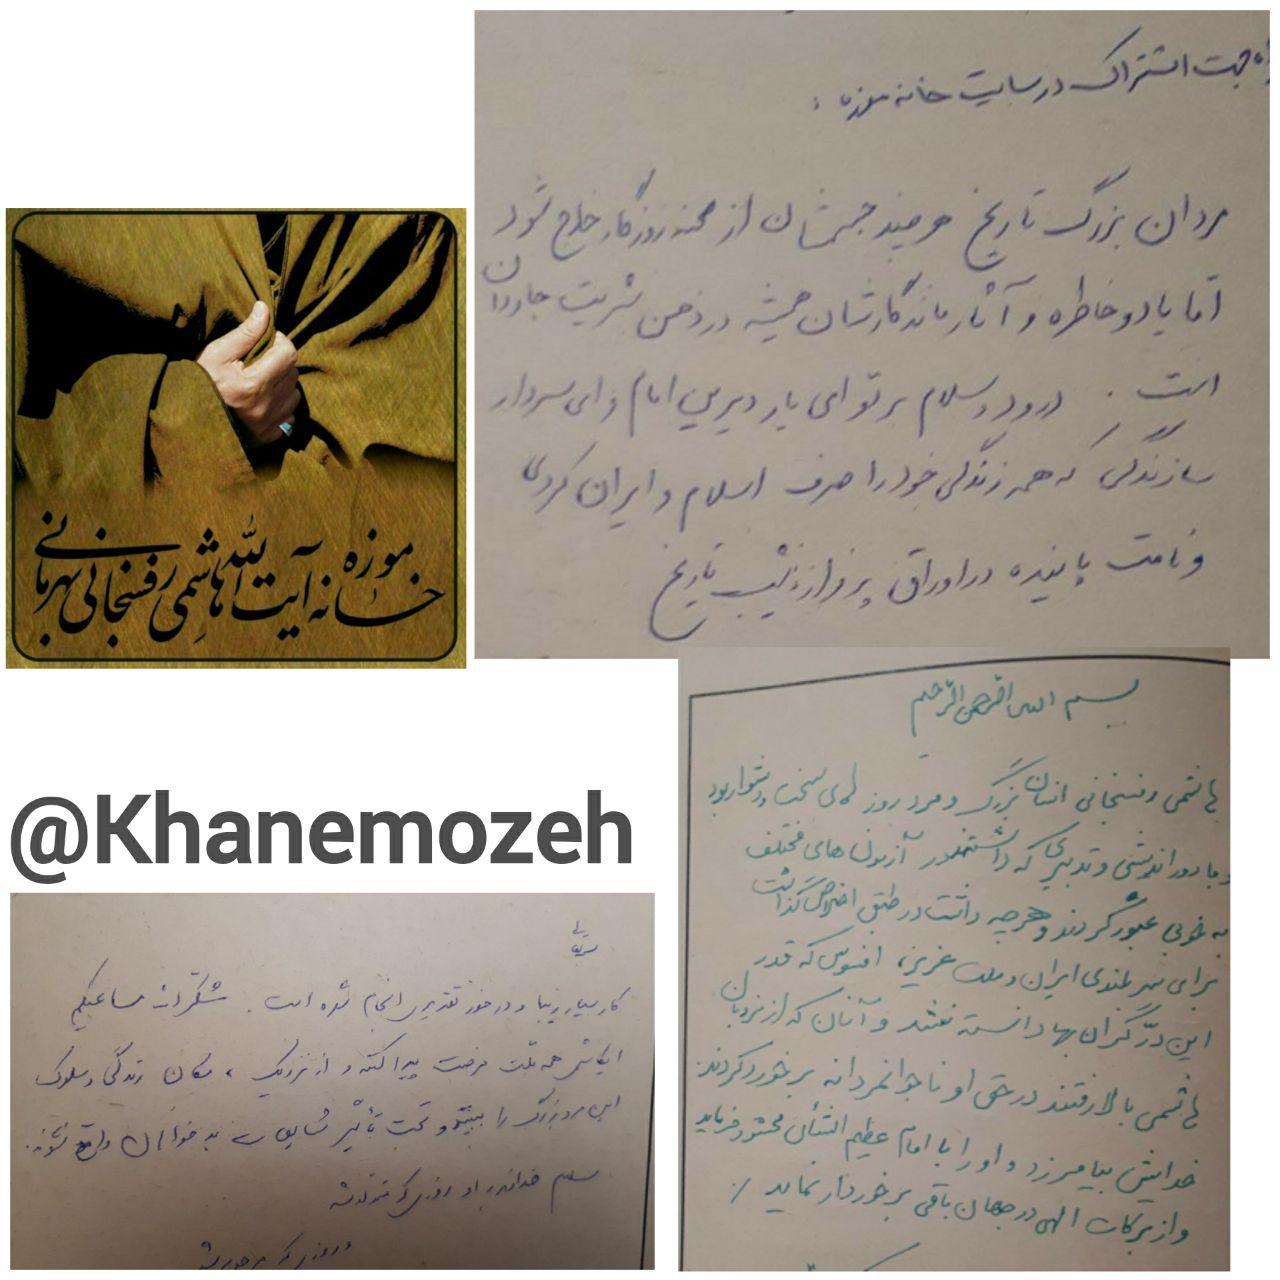 جهت اشتراک در سایت خانه موزه :
مردان بزرگ تاریخ هرچند جسمشان از صحنه روزگار خارج شود
اما یاد و خاطره و آثار ماندگارشان همیشه در ذهن بشریت جاودان
است . درود و سلام بر تو ای یار دیرین امام و ای سردار
سازندگی که همه زندگی خود را صرف اسلام و ایران کردی
و نامت پاینده در اوراق پر فراز و نشیب تاریخ
موزه
خانه آیت الله هاشمی رفسنجانی بهرمانی
بسم الله الرحمن الرحیم
هاشمی رفسنجانی انسان بزرگ و مرد روز های سخت و دشوار بود
و با دوراندیشی و تدبیری که داشتند در آزمون های مختلف
به خوبی عبور کردند و هرچه داشت در طبق اخلاص گذاشت
برای سربلندی ایران و ملت عزیز، افسوس که قدر
این درّ گران بها دانسته نشد و آنان که از نردبان
هاشمی بالا رفتند در حق او ناجوانمردانه برخورد کردند.
خدایش بیامرزد و او را با امام عظیم الشأن محشور فرماید
و از برکات الهی در جهان باقی برخوردار نماید /
@Khanemozeh
کار بسیار زیبا و در خور تقدیری انجام شده است .
ایکاش همه ملت فرصت پیدا کنند و از نزدیک ، مکان زندگی و سلوک
این مرد بزرگ را ببینند و تحت تأثیر به واقع نشوند.
سلام خداوند بر او روزی که متولد شد
و روزی که